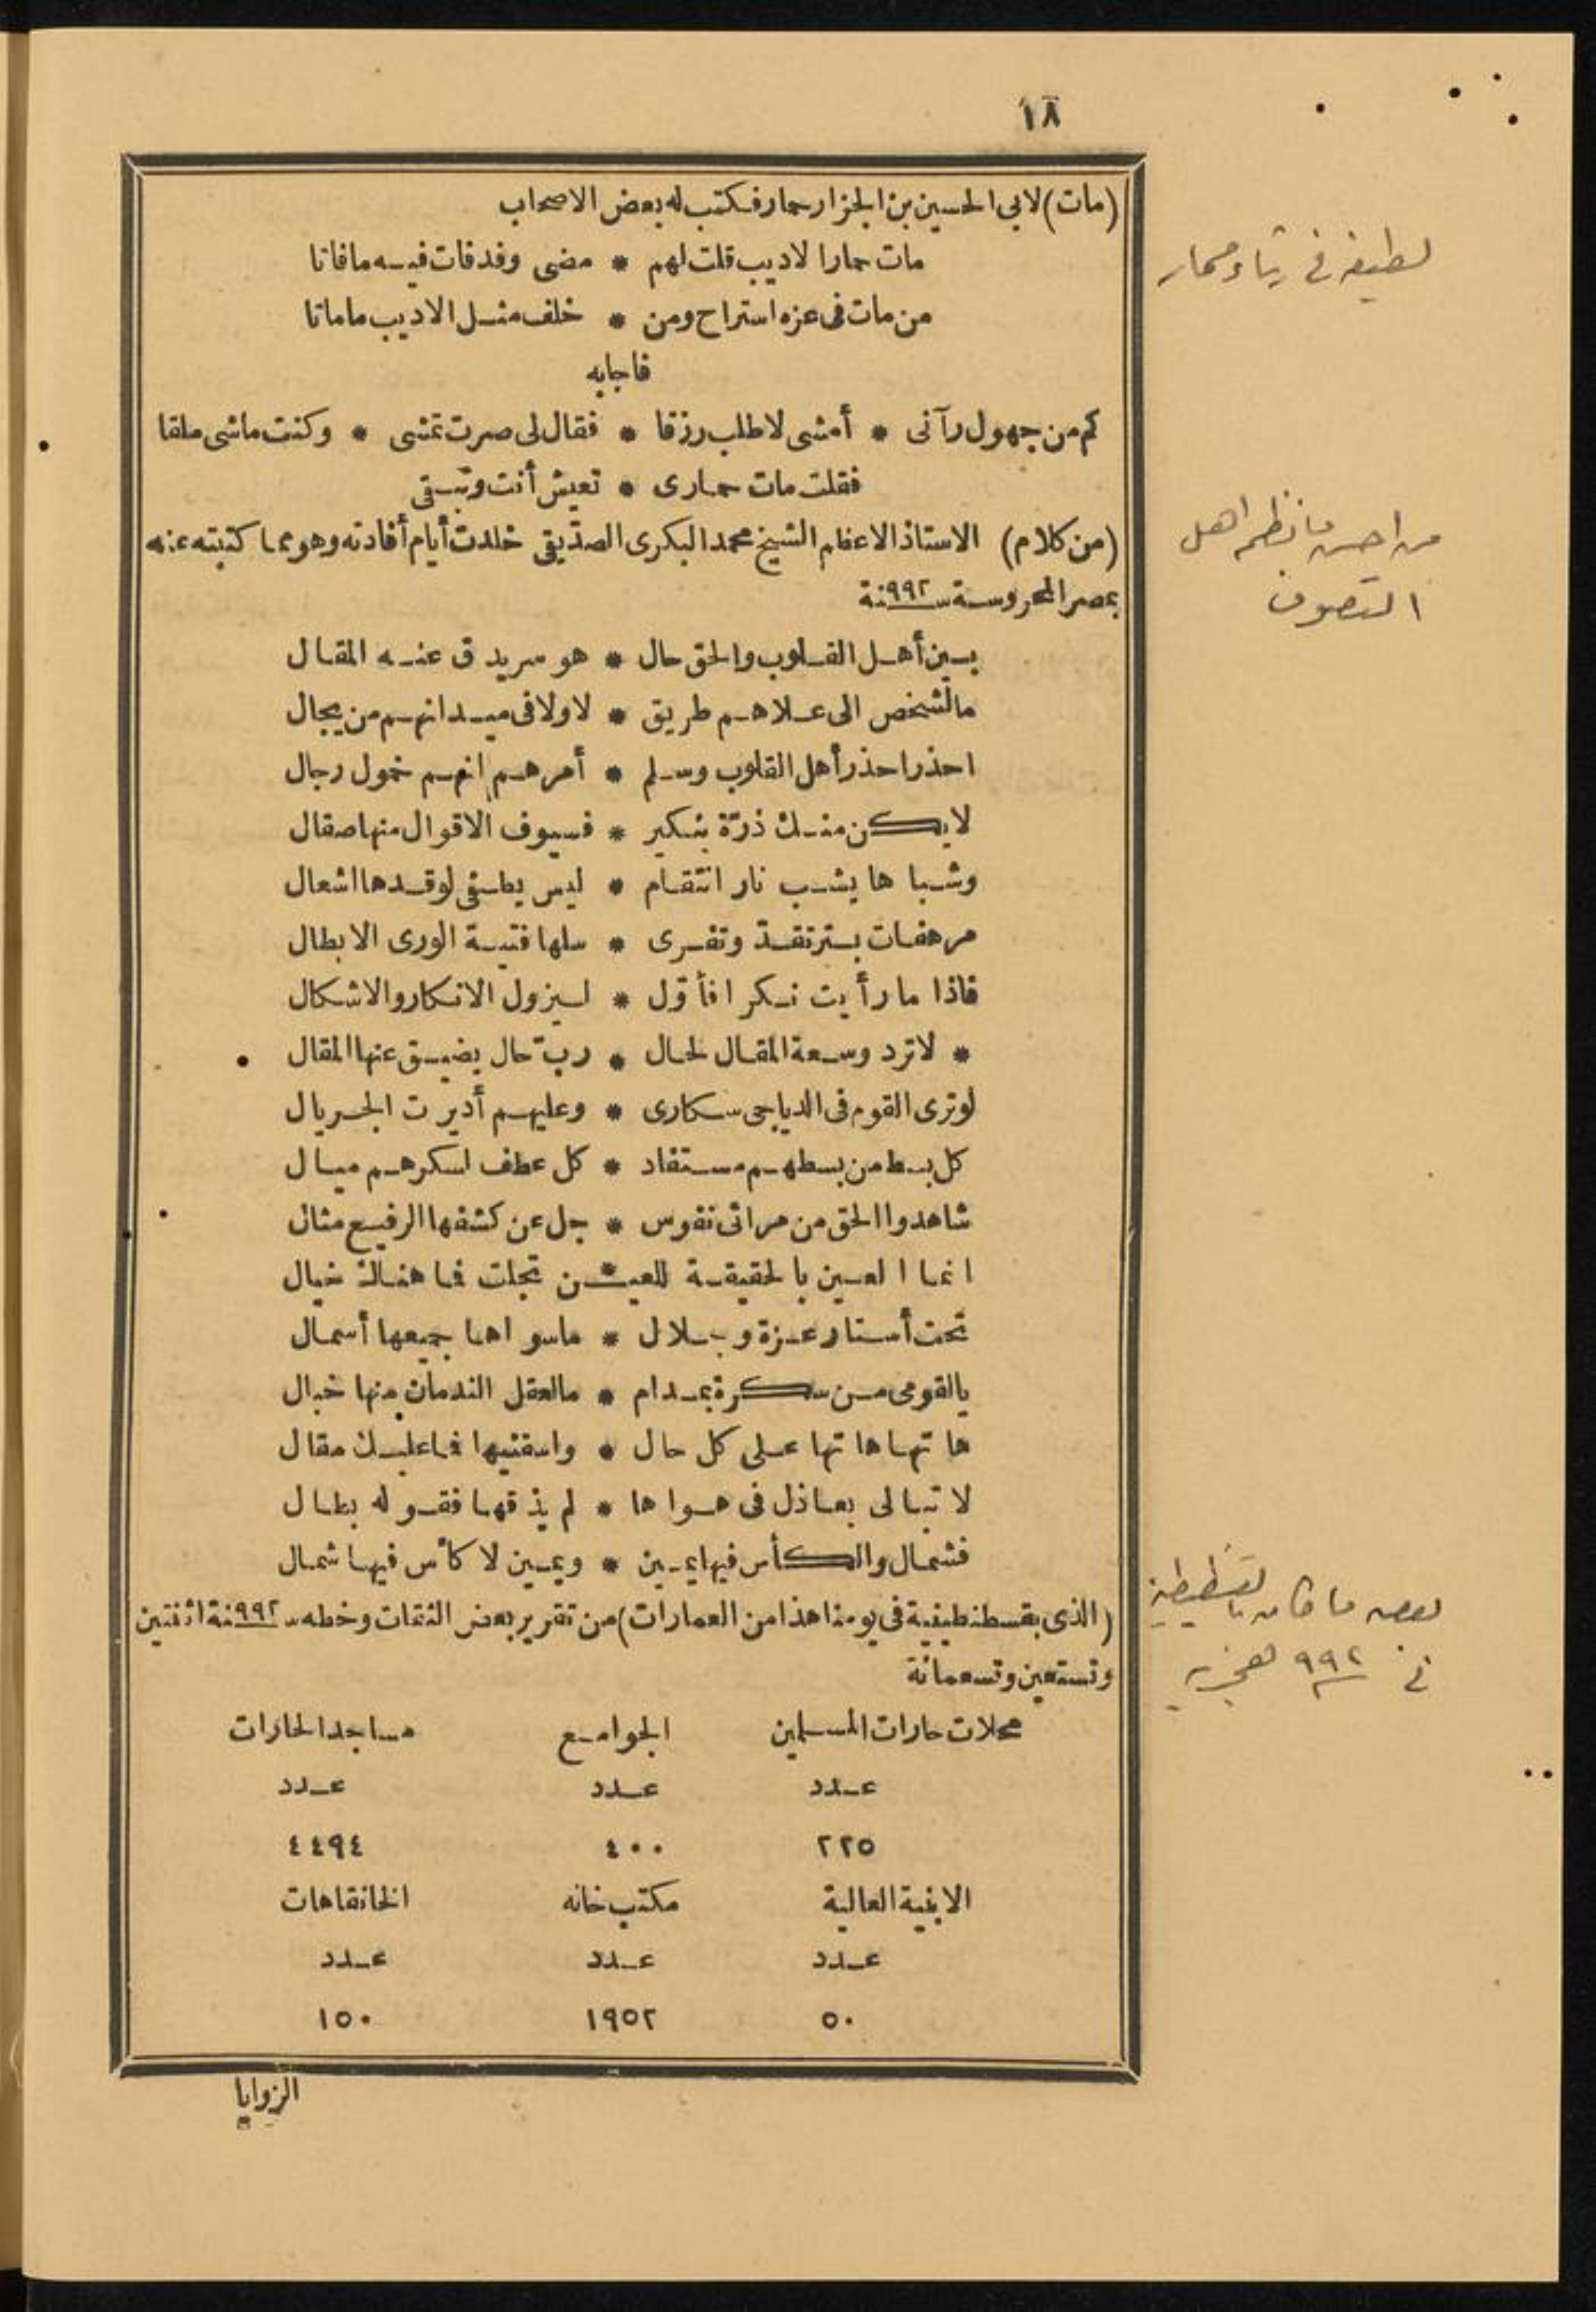 ١٨
(مات) لابى الحسين بن الجزار حمار فكتب له بعض الاصحاب
مات حمار الاديب قلت لهم * مضى وقد فات فيه ما فاتا
من مات فى عزه استراح ومن * خلف مثل الاديب ما ماتا
فاجابه
كم من جهول رآنى * أمشى لاطلب رزقا * فقال لى صرت تمشى * وكنت ماشى ملقا
فقلت مات حمارى * تعيش أنت وتبقى
(من كلام) الاستاذ الاعظم الشيخ محمد البكرى الصديقى خلدت أيام أفادته وهو مما كتبته عنه
بمصر المحروسة سنة ٩٩٢
بين أهل القلوب والحق حال * هو سر يدق عنه المقال
مالشخص الى علاهم طريق * لا ولا فى ميدانهم من مجال
احذر احذر أهل القلوب وسلم * أمرهم انهم فحول رجال
لا يكن منك ذرّة بنكير * فسيوف الاقوال منها صقال
وشباها يشب نار انتقام * ليس يطفى لوقدها اشعال
مرهفات بتر تقدّ وتفرى * سلها فتية الورى الابطال
فاذا ما رأيت نكرا فأوّل * ليزول الانكار والاشكال
* لا ترد وسعة المقال لحال * ربّ حال يضيق عنها المقال
لو ترى القوم فى الدياجى سكارى * وعليهم أديرت الجريال
كل بسط من بسطهم مستفاد * كل عطف لسكرهم ميال
شاهدوا الحق من مرائى نفوس * جل عن كشفها الرفيع مثال
انما العين بالحقيقة للعيـ * ـن تجلت فما هناك خيال
تحت أستار عزة وجلال * ما سواها جميعها أسمال
يالقومى من سكرة بمدام * مالعقل الندمان منها خبال
هاتها هاتها على كل حال * واسقنيها فما عليك مقال
لا تبالى بعاذل فى هواها * لم يذقها فقوله بطال
فشمال والكأس فيها يمين * ويمين لا كأس فيها شمال
(الذى بقسطنطينية فى يومنا هذا من العمارات) من تقرير بعض الثقات وخطه سنة ٩٩٢ اثنتين
وتسعين وتسعمائة
محلات حارات المسلمين الجوامع مساجد الحارات
عدد عدد عدد
٢٢٥ ٤٠٠ ٤٤٩٤
الابنية العالية مكتب خانه الخانقاهات
عدد عدد عدد
٥٠ ١٩٥٢ ١٥٠
الزوايا
لطيفه فى رثاء حمار
من احسن ما نظم اهل
التصوف
بعض ما كان بالقسطنطينية
فى ٩٩٢ هجريه